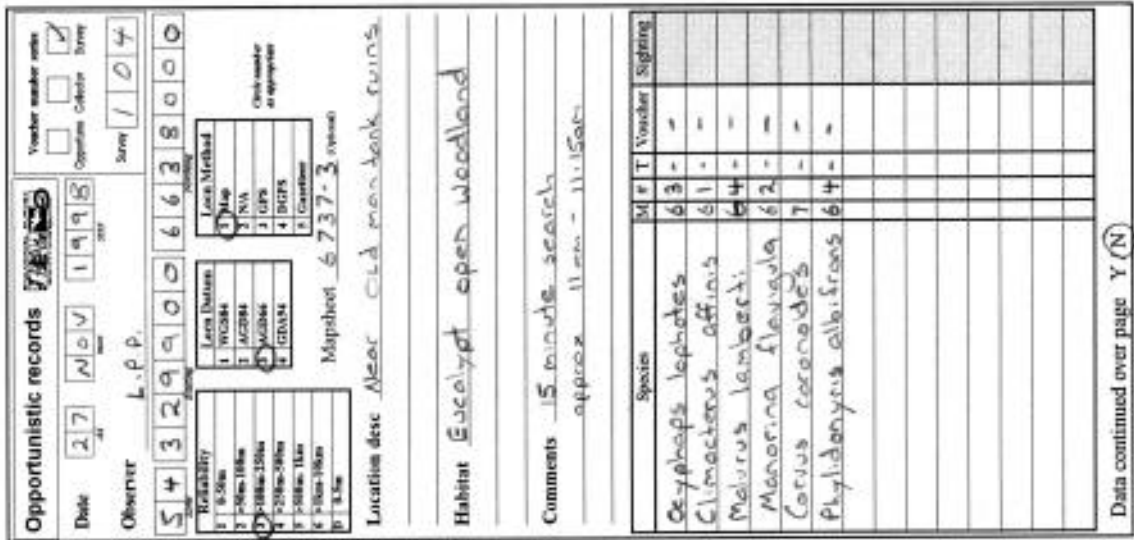 Opportunistic records
Voucher number series
Opportune Collector Survey
Date 27 NOV 1998
Survey 1104
Observer L.P.P.
54 329900 6638000
Zone Easting Northing
Reliability
1 0-50m
2 >50m-100m
3 >100m-250m
4 >250m-500m
5 >500m-1km
6 >1km-10km
0-5m
Locn Datum
1 WGS84
2 AGD84
3 AGD66
4 GDA94
Locn Method
1 Map
2 N/A
3 GPS
4 DGPS
5 Gazetteer
Circle number as appropriate
Mapsheet 6737-3 (Optional)
Location desc Near old man tank ruins
Habitat Eucalypt open woodland
Comments 15 minute search
approx 11am - 11:15am
Species M # T Voucher Sighting
Ocyphaps lophotes 6 3 - -
Climacterus affinis 6 1 - -
Malurus lamberti 6 4 - -
Manorina flavigula 6 2 - -
Corvus coronoides 7 - -
Phylidonyris albifrons 6 4 - -
Data continued over page Y N